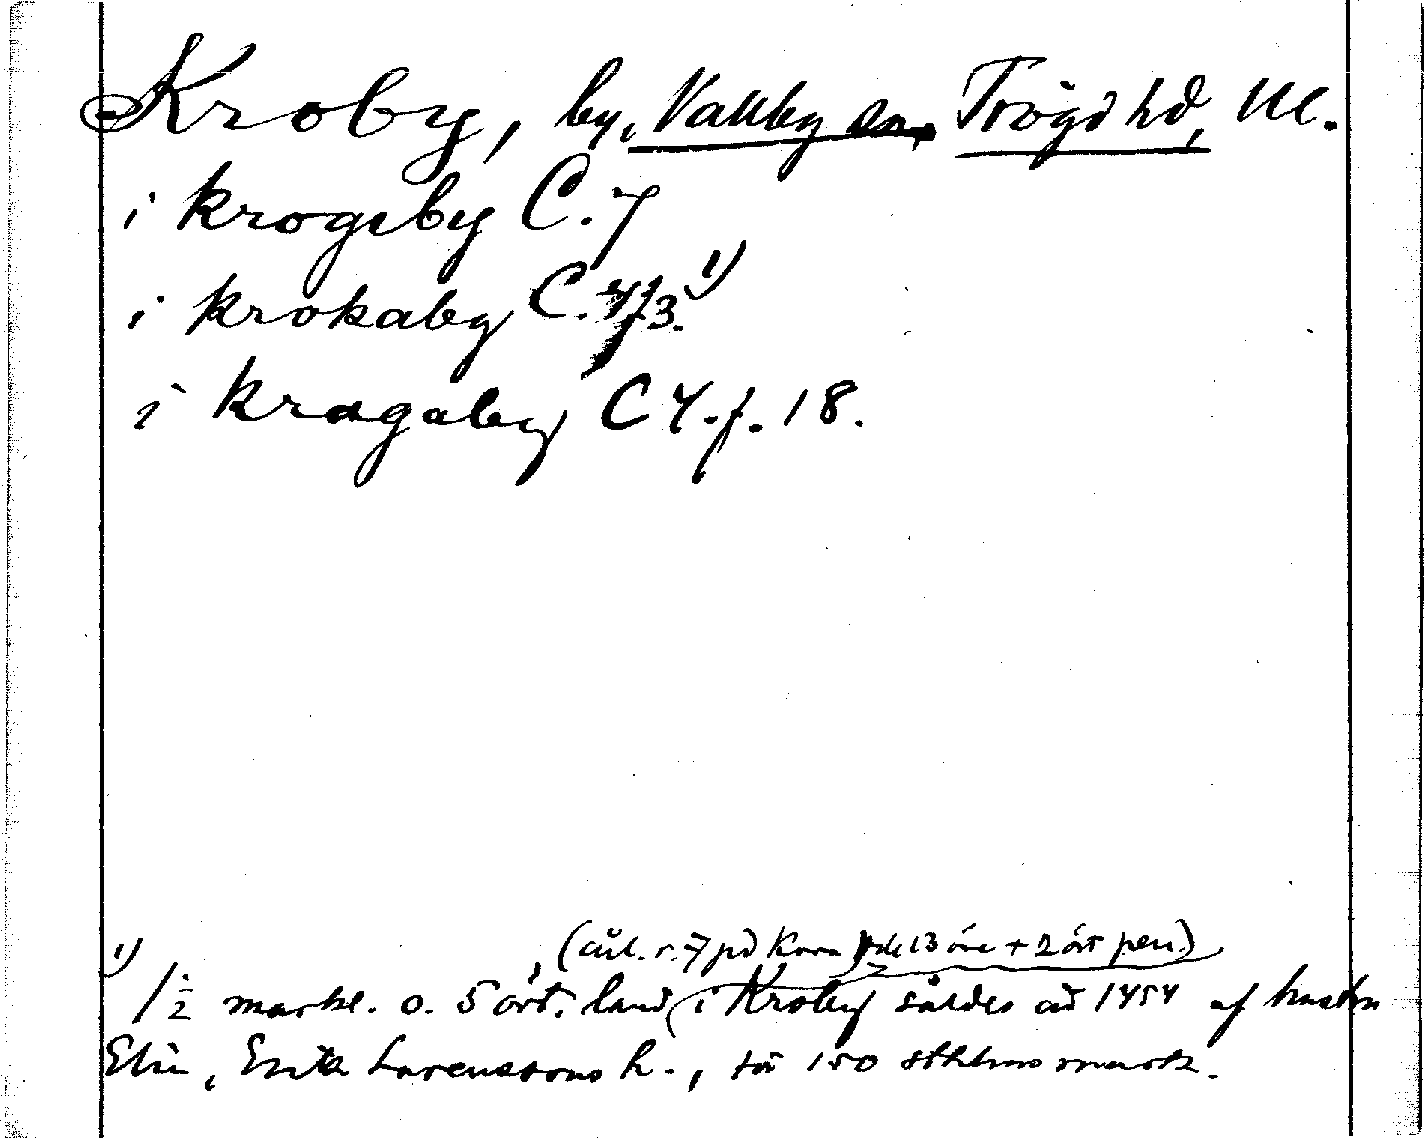 Kroby, by, Vallby sn, Trögds hd, Ul.
i krogsby C. 7
i krokaby C. 3. 1)
i kragaby C 4. f. 18.
1) (årl. r. 7 pd korn) 13 öre + 2 ört pen.)
1/2 markl. o. 5 ört. land, i Kroby såldes år 1454 af hustru
Elin, Eriks Larenssons h., för 150 sthlms mark.